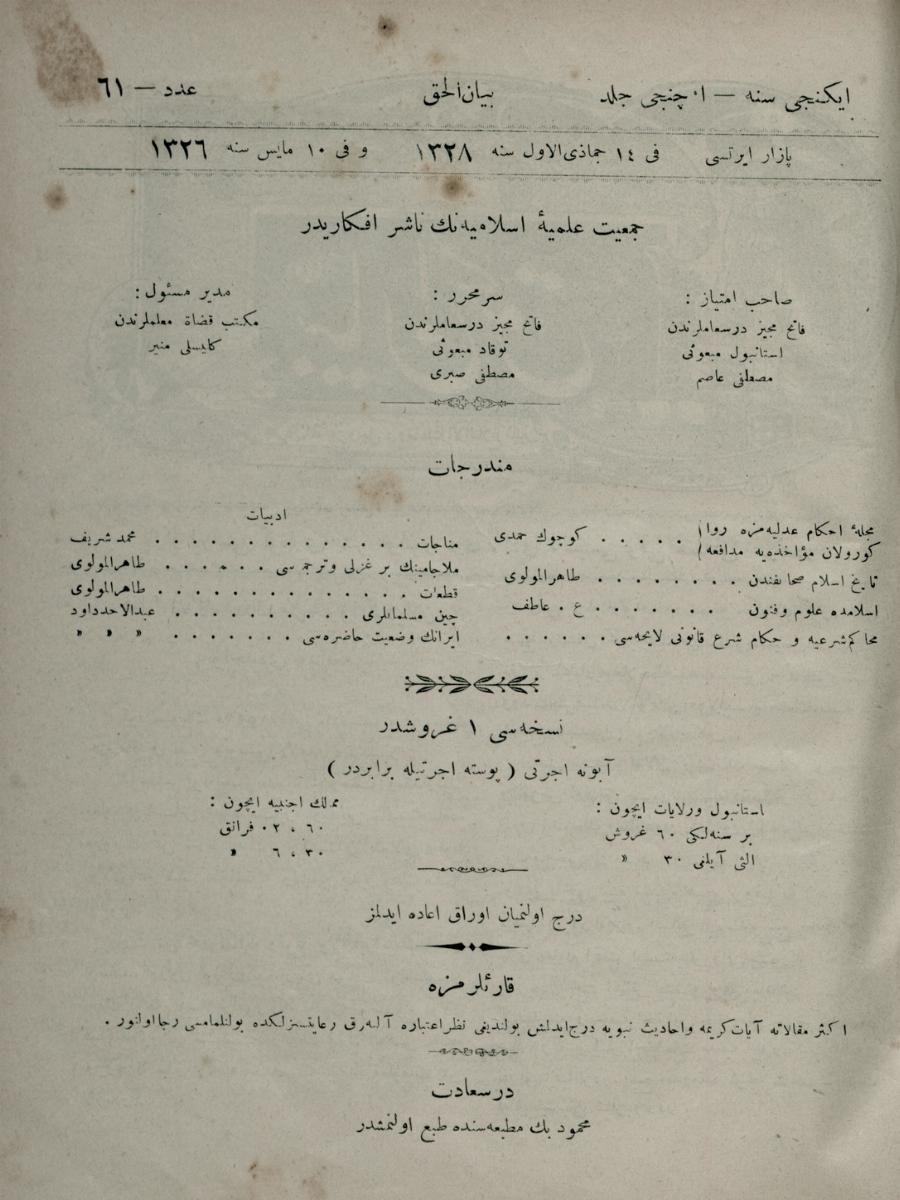 ایکنجی سنه — ا چنجی جلد
بیان الحق
عدد — ٦١
پازار ایرتسی فی ١٤ جماذی الاول سنه ١٣٢٨ و فی ١٠ مایس سنه ١٣٢٦
جمعیت علمیهٔ اسلامیه نك ناشر افكاریدر
صاحب امتیاز :
فاتح مجیز درسعاملرندن
استانبول مبعوثی
مصطفی عاصم
سر محرر :
فاتح مجیز درسعاملرندن
توقاد مبعوثی
مصطفی صبری
مدیر مسئول :
مكتب قضاة معلملرندن
كلیسلی منیر
مندرجات
مجلهٔ احكام عدلیه مزه روا
كورولان مؤاخذه یه مدافعه . . . . . كوچوك حمدی
تاریخ اسلام صحائفندن . . . . . . . . طاهرالمولوی
اسلامده علوم وفنون . . . . . . . ع . عاطف
محاكم شرعیه و حكام شرع قانونی لایحه سی . . . . . .
ادبیات
مناجات . . . . . . . . . . . . . . محمد شریف
ملاجامینك بر غزلی وترجمه سی . . . . . . طاهرالمولوی
قطعات . . . . . . . . . . . . . . طاهرالمولوی
چین مسلمانلری . . . . . . . . . . عبدالاحد داود
ایرانك وضعیت حاضره سی . . . . . . . « « «
نسخه سی ١ غروشدر
آبونه اجرتی ( پوسته اجرتیله برابردر )
استانبول وولایات ایچون :
بر سنه لكی ٦٠ غروش
التی آیلغی ٣٠ «
ممالك اجنبیه ایچون :
فرانق
درج اولنمیان اوراق اعاده ایدلمز
قارئلرمزه
اكثر مقالاته آیات كریمه واحادیث نبویه درج ایدلش بولندیغی نظر اعتباره آلنه رق رعایتسزلكده بولنلمامسی رجا اولنور .
درسعادت
محمود بك مطبعه سنده طبع اولنمشدر